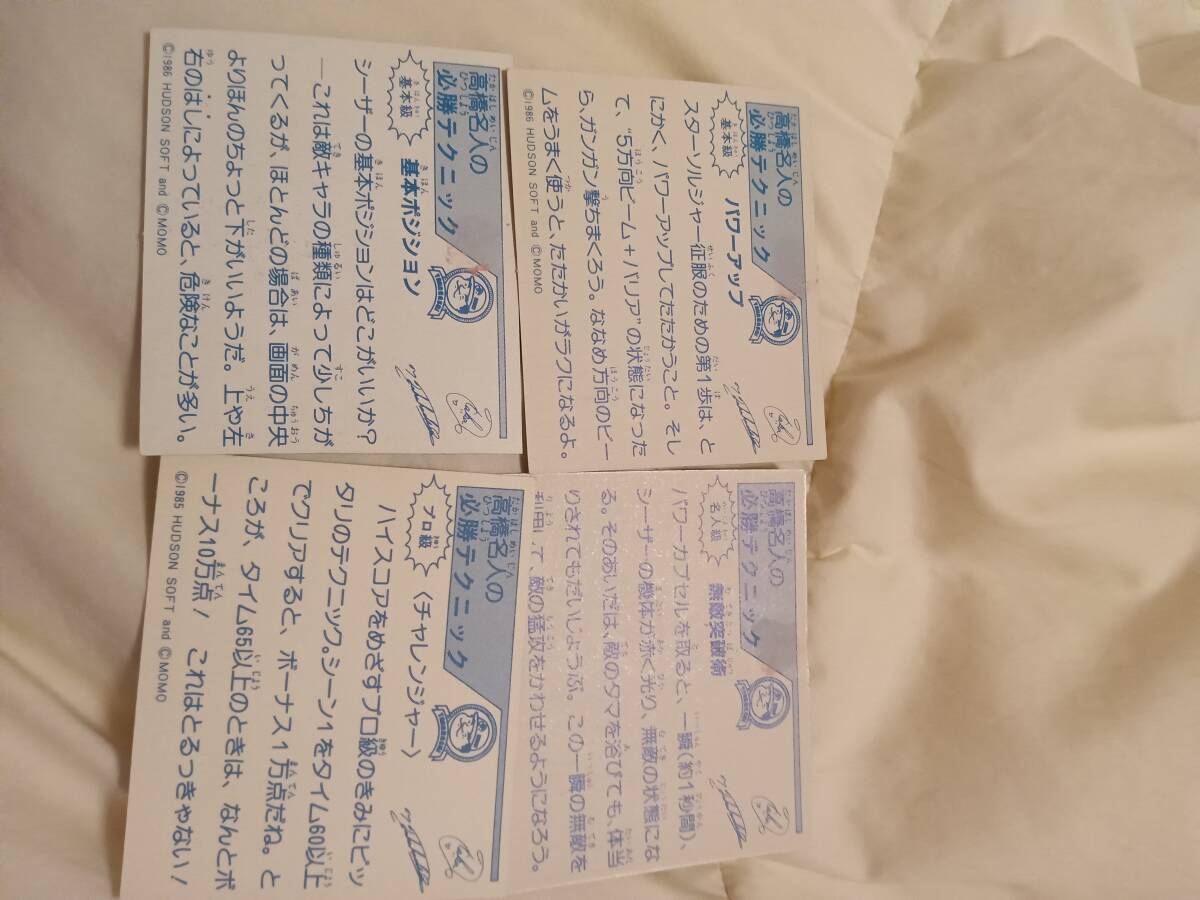 高橋名人の
必勝テクニック
基本級
基本ポジション
シーザーの基本ポジションはどこがいいか?
—これは敵キャラの種類によって少しちが
ってくるが、ほとんどの場合は、画面の中央
よりほんのちょっと下がいいようだ。上や左
右のはしによっていると、危険なことが多い。
©1986 HUDSON SOFT and ©MOMO
高橋名人の
必勝テクニック
基本級
パワーアップ
スターソルジャー征服のための第1歩は、と
にかく、パワーアップしてたたかうこと。そし
て、“5方向ビーム+バリア”の状態になった
ら、ガンガン撃ちまくろう。ななめ方向のビー
ムをうまく使うと、たたかいがラクになるよ。
©1986 HUDSON SOFT and ©MOMO
高橋名人の
必勝テクニック
プロ級
〈チャレンジャー〉
ハイスコアをめざすプロ級のきみにピッ
タリのテクニック。シーン1をタイム60以上
でクリアすると、ボーナス1万点だね。と
ころが、タイム65以上のときは、なんとボ
ーナス10万点! これはとるっきゃない!
©1985 HUDSON SOFT and ©MOMO
高橋名人の
必勝テクニック
名人級
無敵突破術
パワーカプセルを取ると、一瞬(約1秒間)、
シーザーの機体が赤く光り、無敵の状態にな
る。そのあいだは、敵のタマを浴びても、体当
りされてもだいじょうぶ。この一瞬の無敵を
利用して、敵の猛攻をかわせるようになろう。